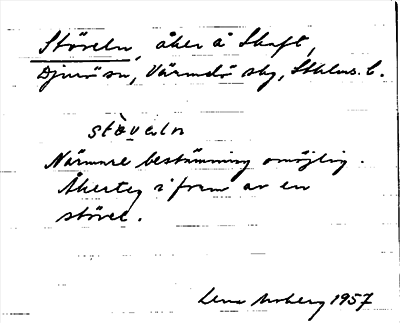 Stöveln, åker å Skaft,
Djurö sn, Värmdö skg, Sthlms l.
stö̀valn
Närmare bestämning omöjlig.
Åkerteg i form av en
stövel.
Lena Moberg 1957